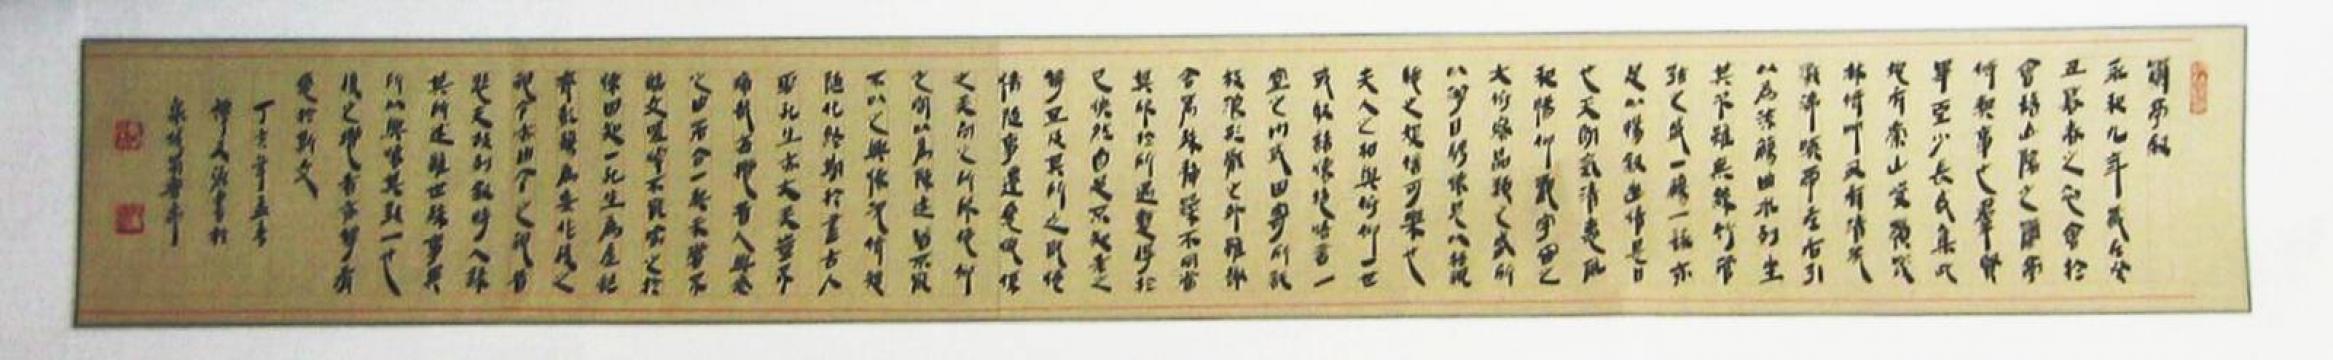 蘭亭敘
永和九年歲在癸
丑暮春之初會於
會稽山陰之蘭亭
脩禊事也羣賢
畢至少長咸集此
地有崇山峻領茂
林脩竹又有清流
激湍映帶左右引
以為流觴曲水列坐
其次雖無絲竹管
弦之盛一觴一詠亦
足以暢敘幽情是日
也天朗氣清惠風
和暢仰觀宇宙之
大俯察品類之盛所
以遊目騁懷足以極視
聽之娛信可樂也
夫人之相與俯仰一世
或取諸懷抱悟言一
室之內或因寄所託
放浪形骸之外雖趣
舍萬殊靜躁不同當
其欣於所遇暫得於
己快然自足不知老之
將至及其所之既倦
情隨事遷感慨係
之矣向之所欣俛仰
之間以為陳迹猶不能
不以之興懷況脩短
隨化終期於盡古人
云死生亦大矣豈不
痛哉每攬昔人興感
之由若合一契未嘗不
臨文嗟悼不能喻之於
懷固知一死生為虛誕
齊彭殤為妄作後之
視今亦由今之視昔
悲夫故列敘時人錄
其所述雖世殊事異
所以興懷其致一也
後之攬者亦將有
感於斯文
丁亥年孟春
書於